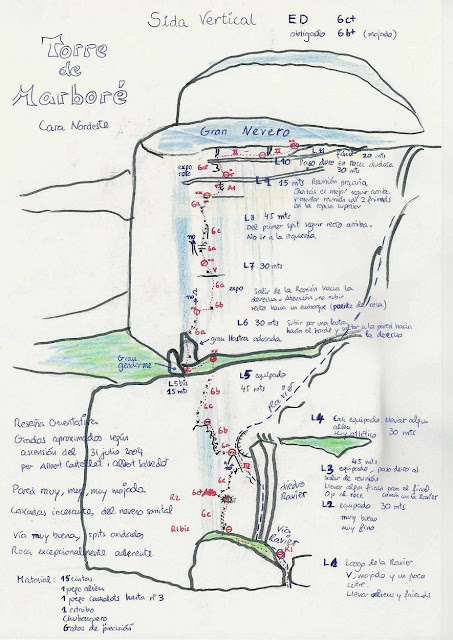 Sida Vertical
ED 6c+
obligado 6b+ (mojado)
Torre
de
Marboré
Cara Nordeste
Gran Nevero
L11 fácil 20 mts
L10 Paso duro en roca dudosa
30 mts
expo
roto
6a+
A1
L9 15 mts Reunión precaria
Quizás es mejor seguir arriba
y montar reunión con 2 friends
en la repisa superior
L8 45 mts
Del primer spit seguir recto arriba
No ir a la izquierda
6c
6a
V
L7 30 mts
expo
6a
6b
Salir de la Reunión hacia la
derecha - Atención, no subir
recto hacia un embarque (puente de roca)
L6 30 mts Subir por una lastra
hasta el borde y saltar a la pared hacia
la derecha
6a
gran llastra adosada
Gran
gendarme
L5bis
15 mts
L5 equipado
45 mts
6b
6c
6b
6a
Ravier
L4 Casi equipado. Llevar algun
alien
Muy atlético 30 mts
Reseña Orientativa
Grados aproximados según
ascensión del 31 julio 2004
per Albert Castellet i Albert Salvadó
Pared muy, muy, muy mojada
Cascadas incesantes del nevero somital
Vía muy buena, spits oxidados
Roca excepcionalmente adherente
R2
6c+
6c
R1bis
diedro
Ravier
Vía
Ravier
R1
45 mts
L3 equipado, paso duro al
salir de reunión
Llevar algun friend para el final
Ojo al roce común con la Ravier
L2 equipado 30 mts
muy bueno
muy fino
L1 Largo de la Ravier
V, mojado y un poco
cutre
Llevar aliens y friends
Material: 15 cintas
1 juego aliens
1 juego camalots hasta nº 3
1 estribo
Chubasquero
Gatos de precisión